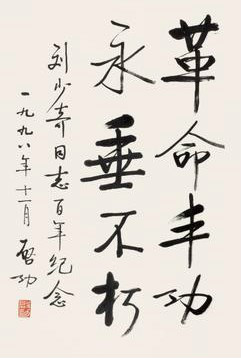 革命丰功
永垂不朽
刘少奇同志百年纪念
一九九八年十一月 启功